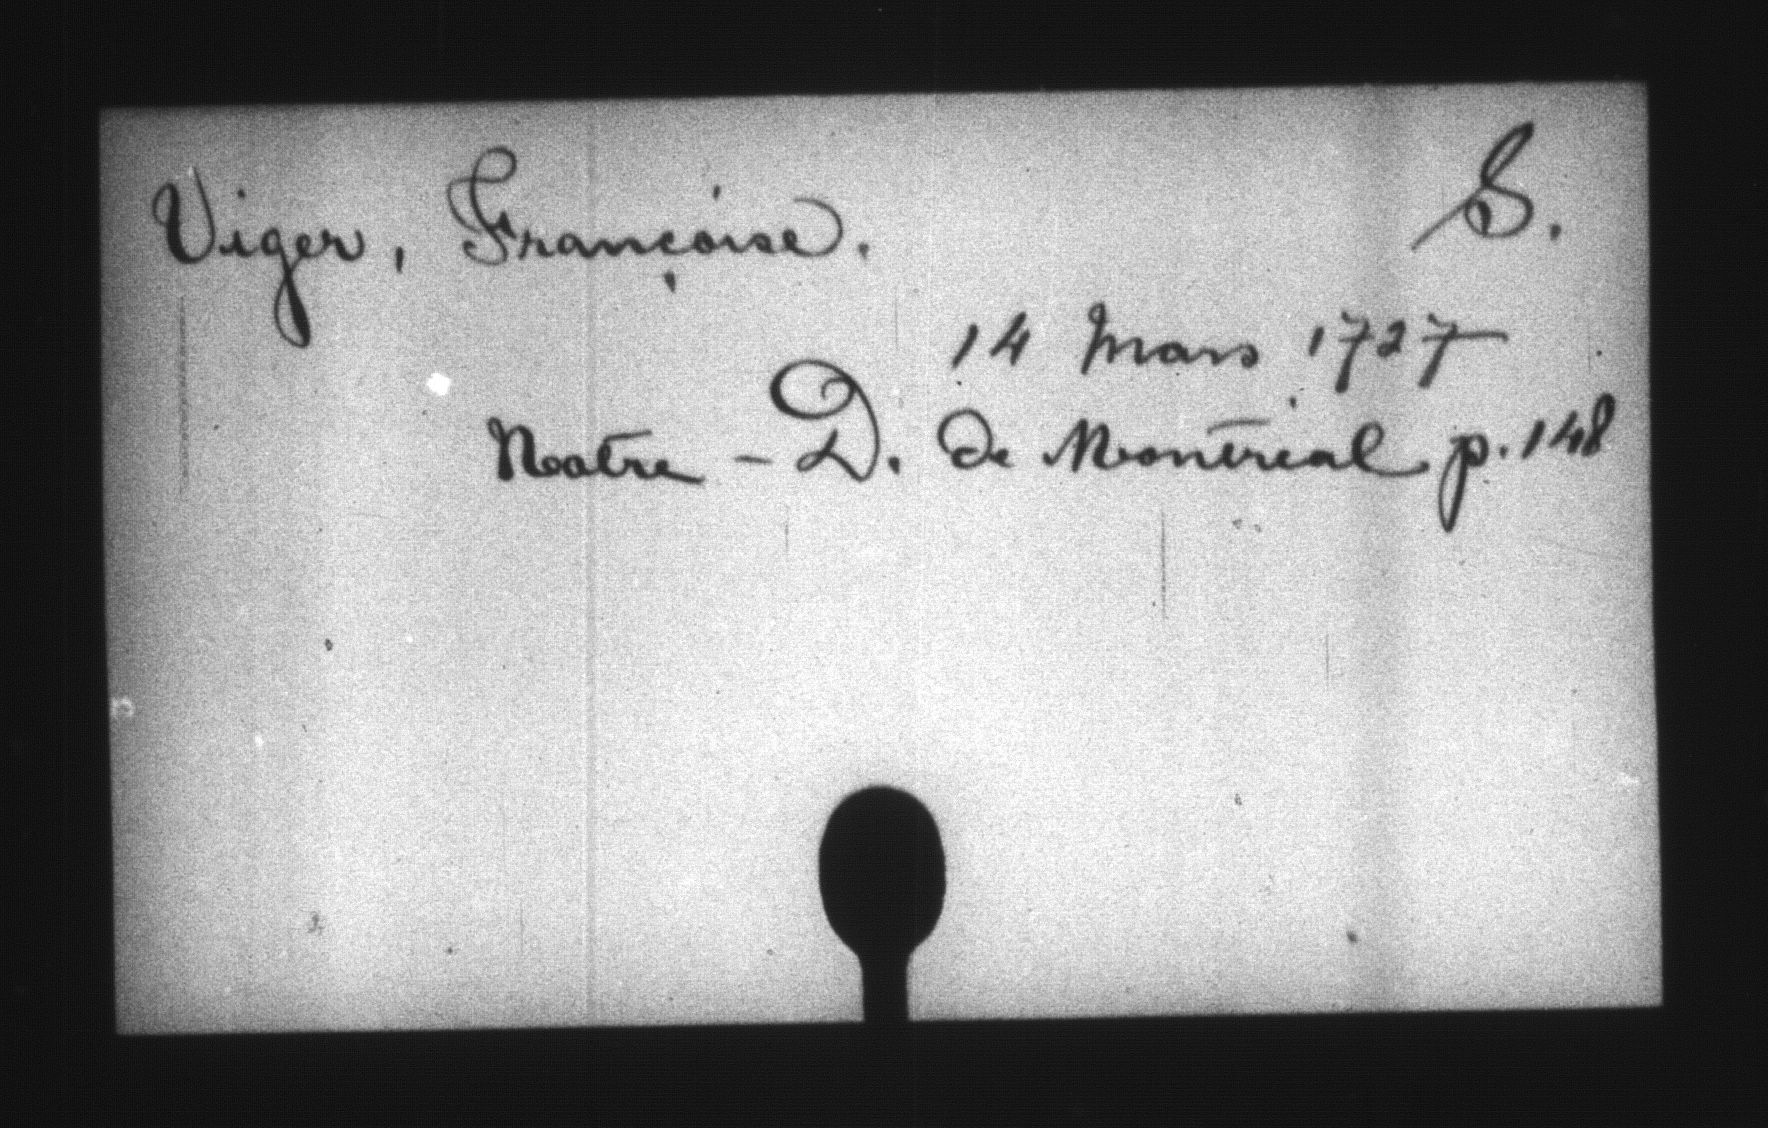 Viger, Françoise. S.
14 Mars 1727
Notre-D. de Montréal p. 148